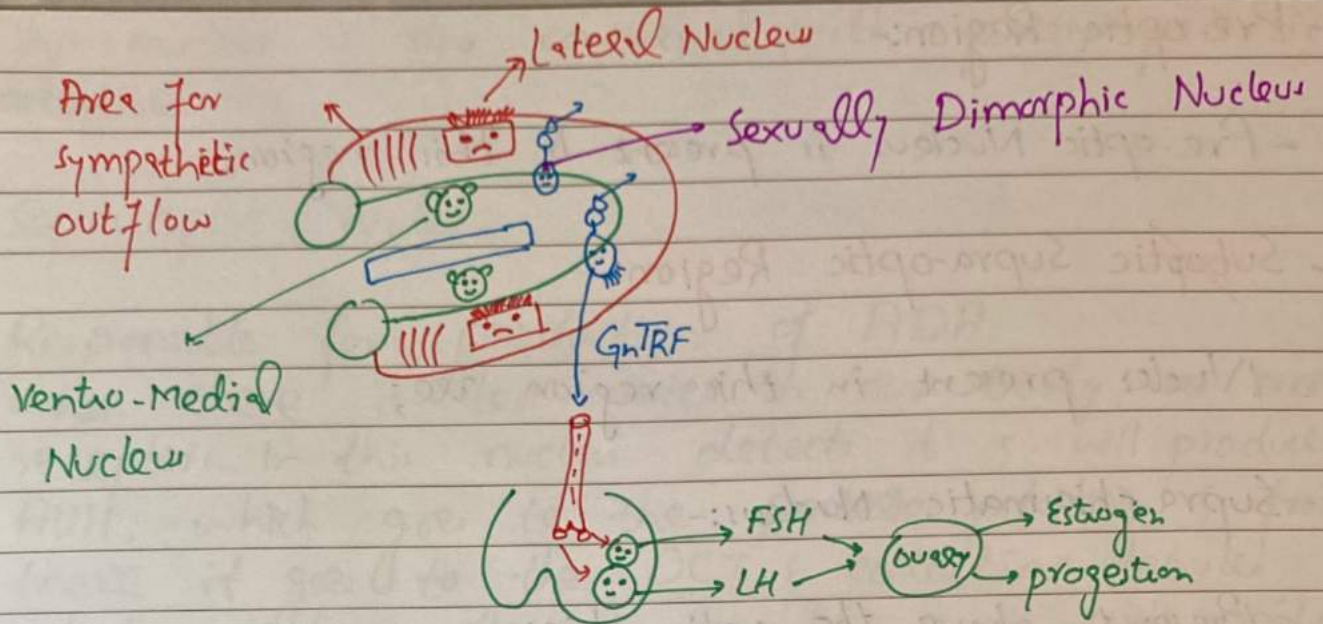 Lateral Nucleus
Area for
sympathetic
out flow
Sexually Dimorphic Nucleus
GnTRF
Ventro-Medial
Nucleus
FSH
LH
ovary
Estrogen
progestion